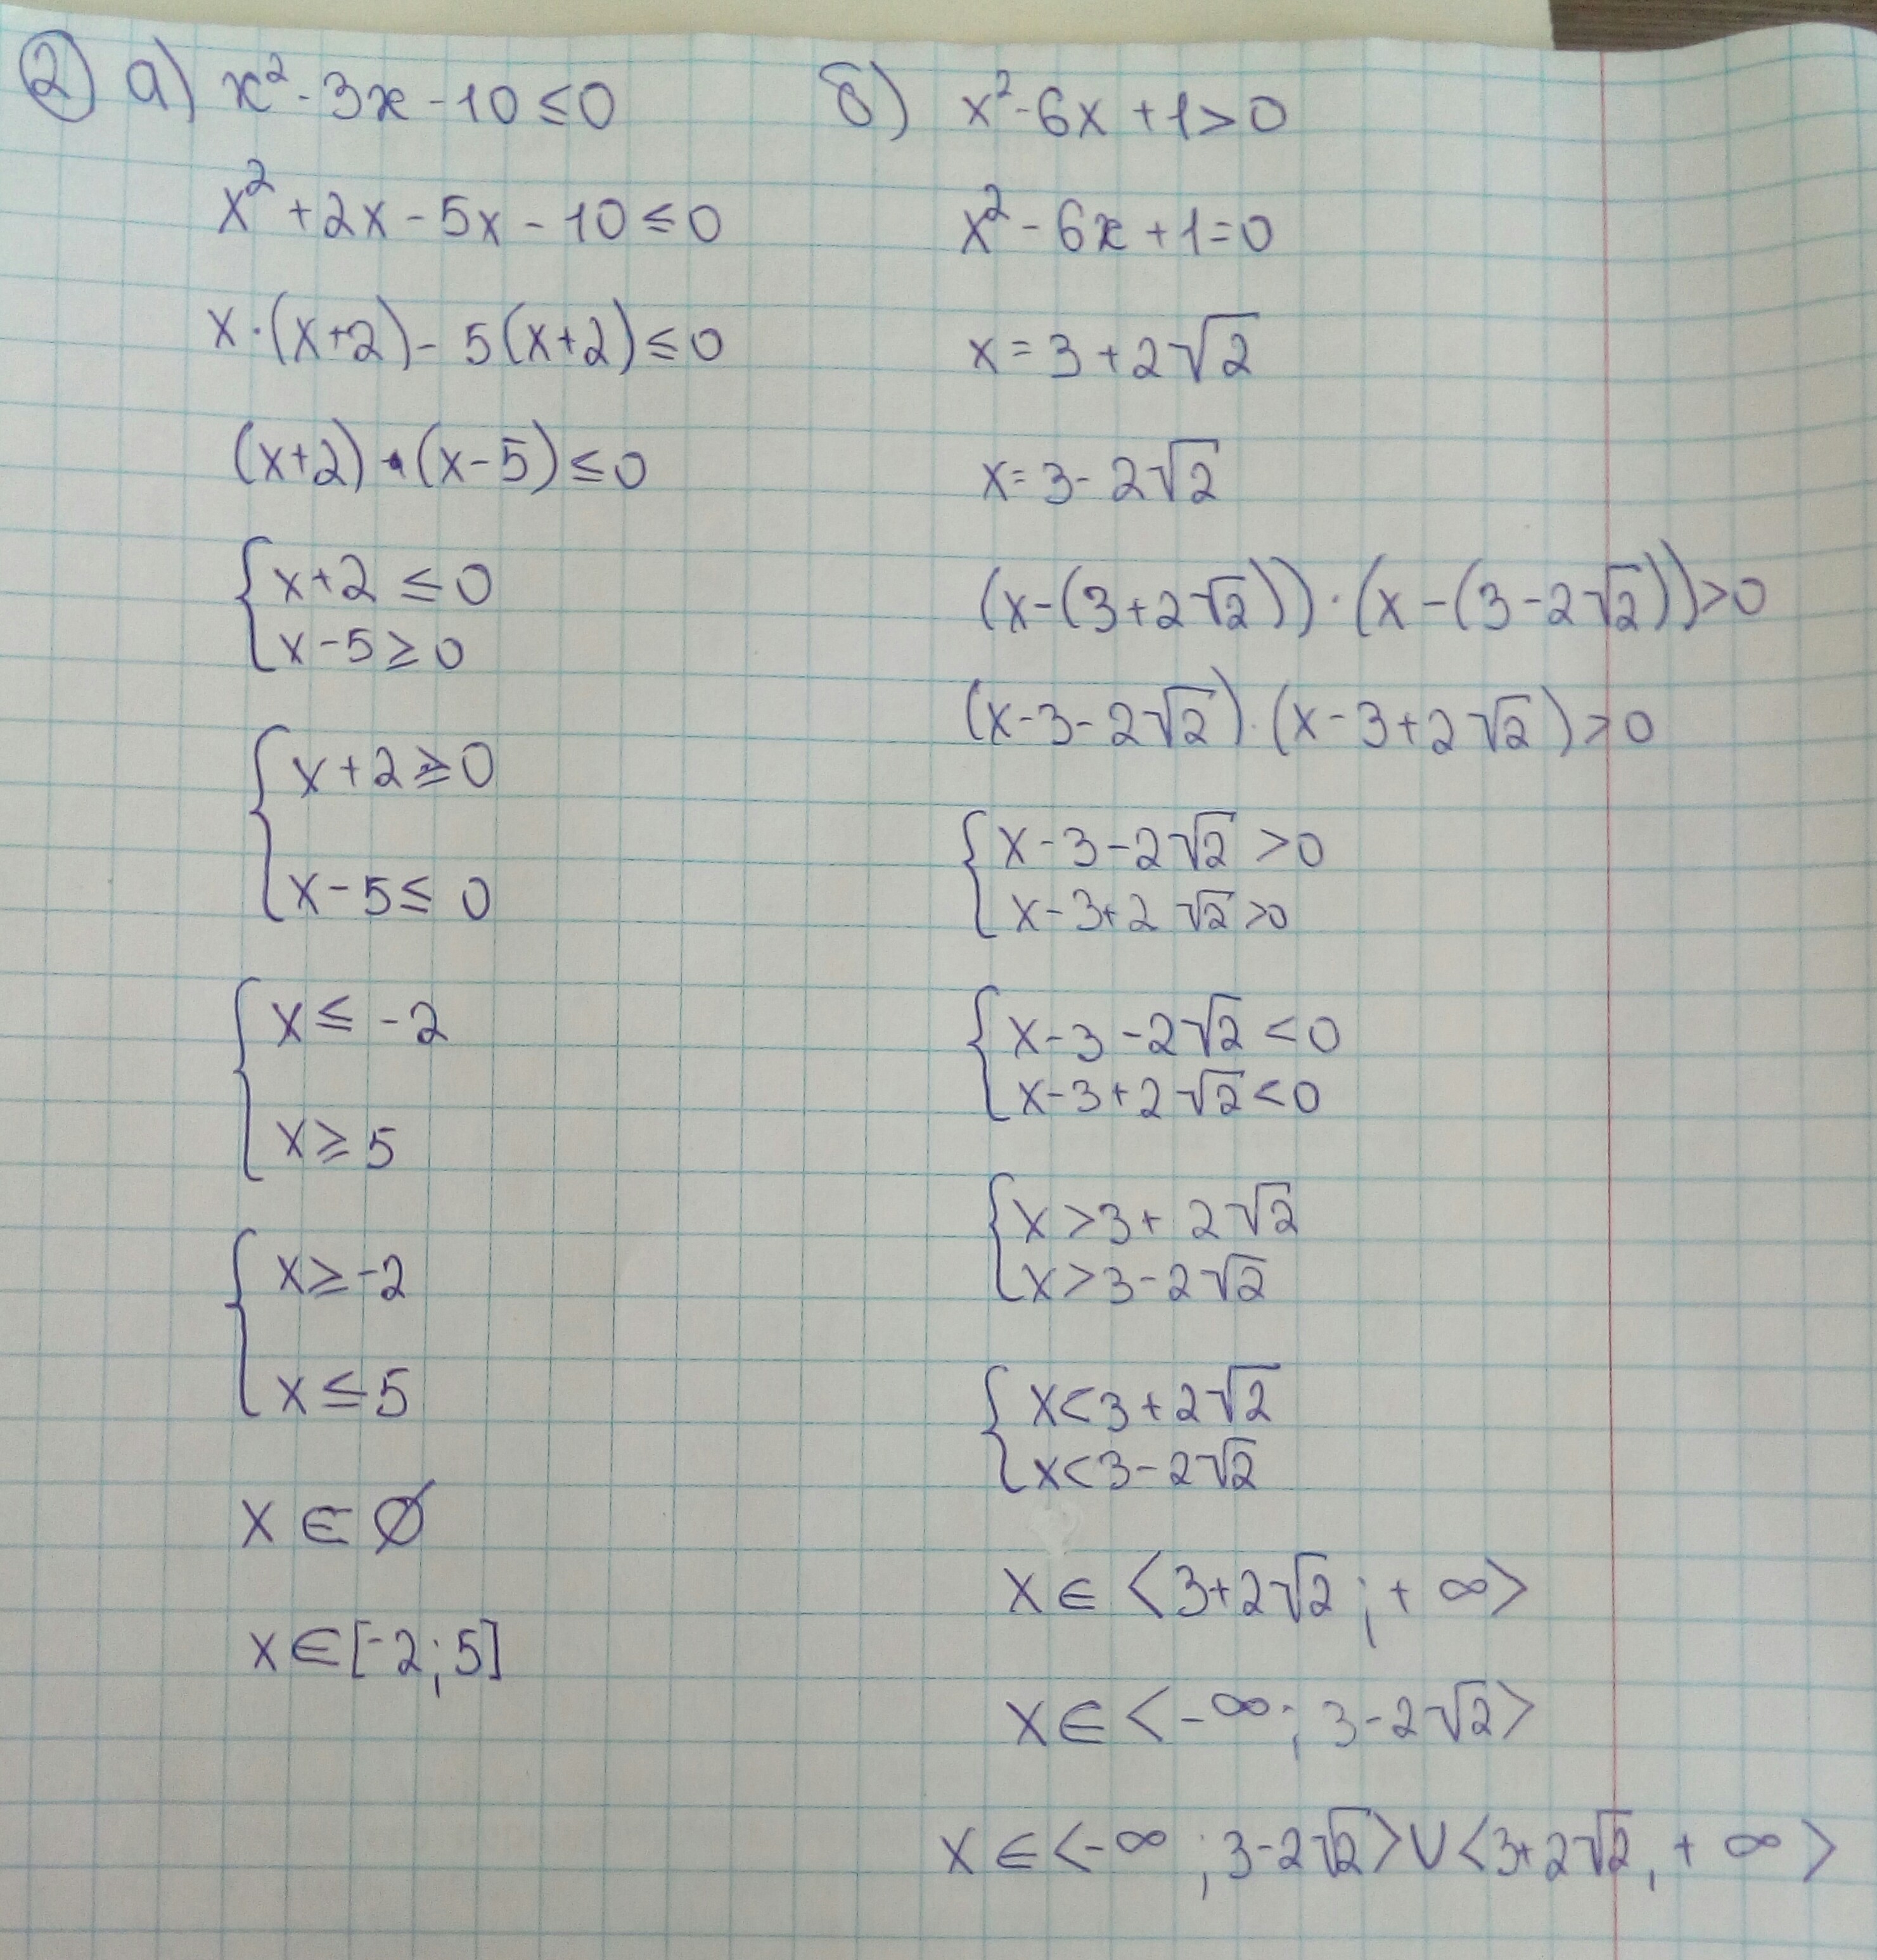 ② а) x² - 3x - 10 ≤ 0
x² + 2x - 5x - 10 ≤ 0
x · (x+2) - 5(x+2) ≤ 0
(x+2) · (x-5) ≤ 0
{ x+2 ≤ 0
x-5 ≥ 0
{ x+2 ≥ 0
x-5 ≤ 0
{ x ≤ -2
x ≥ 5
{ x ≥ -2
x ≤ 5
x ∈ ∅
x ∈ [-2; 5]
б) x² - 6x + 1 > 0
x² - 6x + 1 = 0
x = 3 + 2√2
x = 3 - 2√2
(x-(3+2√2)) · (x-(3-2√2)) > 0
(x-3-2√2) · (x-3+2√2) > 0
{ x-3-2√2 > 0
x-3+2√2 > 0
{ x-3-2√2 < 0
x-3+2√2 < 0
{ x > 3+2√2
x > 3-2√2
{ x < 3+2√2
x < 3-2√2
x ∈ <3+2√2; +∞>
x ∈ <-∞; 3-2√2>
x ∈ <-∞; 3-2√2> ∪ <3+2√2, +∞>